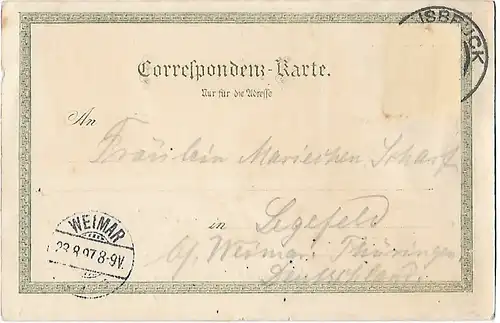 ISBRUCK
Correspondenz-Karte.
Nur für die Adresse
An
Fräulein Mariechen Scharf
in Legefeld
b/ Weimar Thüringen
Deutschland.
WEIMAR
23.8.97.8-9V.